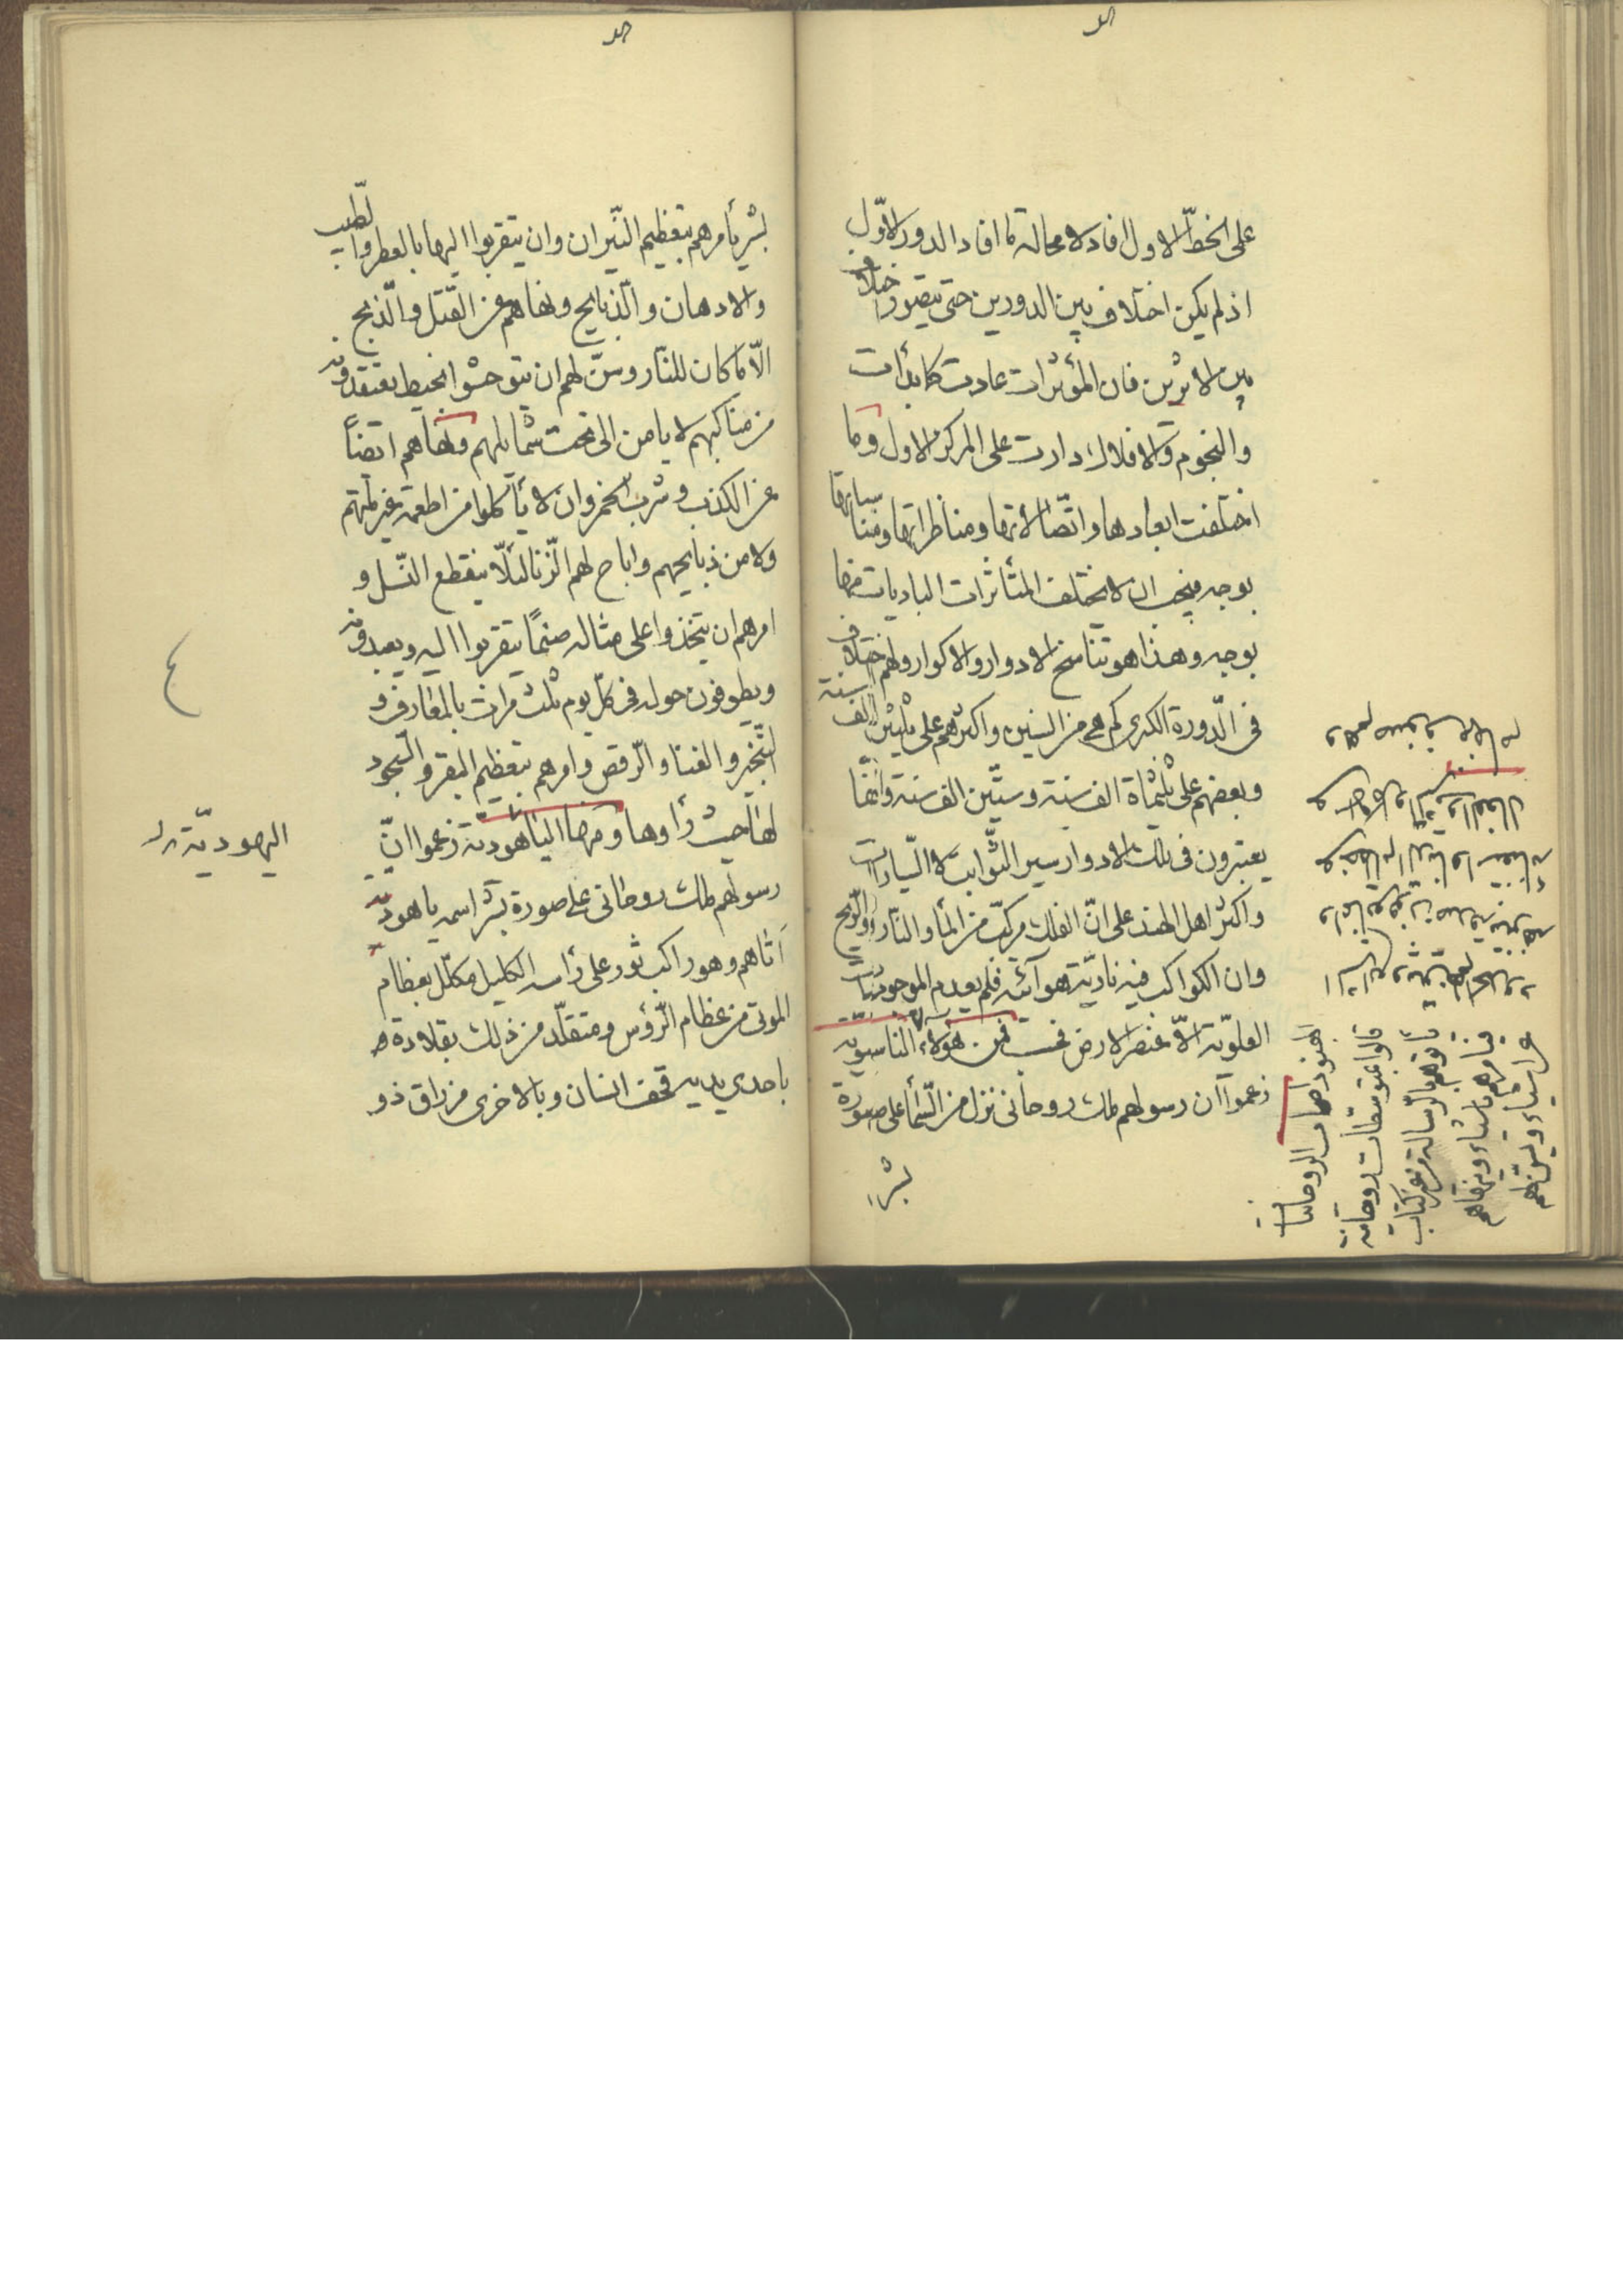 على الخط الاول افاد لا محالة ما افاد الدور الاوّل
اذ لم يكن اختلاف بين الدورين حتى يتصور اختلاف
بين الاثرين فان المؤثرات عادت كما بدأت
والنجوم والافلاك دارت على المركز الاول وما
اختلفت ابعادها واتّصالاتها ومناظراتها ومناسباتها
بوجه فيجب ان لا يختلف المتأثرات الباديات منها
بوجه وهذا هو تناسخ الادوار والاكوار ولهم اختلاف
فى الدّورة الكبرى كم هى من السنين واكثرهم على ثلثين الف سنة
وبعضهم على ثلثماة الف سنة وستّين الف سنة وانما
يعتبرون فى تلك الادوار سير الثّوابت لا السّيارات
واكثر اهل الهند على انّ الفلك مركّب من المأ والنّار والرّيح
وان الكواكب فيه ناريّة هوآئية فلم يعدم الموجودات
العلويّة الّا عنصر الارض فحسب فمن هؤلاء الناسوية
زعموا ان رسولهم ملك روحانى نزل من السّمأ على صورة
بشر
الهنود اصحاب الروحانيات
قالوا بمتوسطات روحانية
يأتوهم بالرسالة من غير كتاب
فيأمرهم باشياء وينهاهم
عن اشياء ويسنّ لهم
بشر يأمرهم بتعظيم النّيران وان يتقربوا اليها بالعطر والطّيب
والادهان والذبايح ونهاهم عن القتل والذّبح
الّا ما كان للنّار وسنّ لهم ان يتوحشوا بخيط يعقدونه
من مناكبهم الايامن الى تحت شمايلهم ونهاهم ايضاً
عن الكذب وشرب الخمر وان لا يأكلوا من اطعمة غير ملتهم
ولا من ذبايحهم واباح لهم الزّنا لئلّا ينقطع النّسل و
امرهم ان يتخذوا على مثاله صنماً يتقربوا اليه ويعبدونه
ويطوفون حوله فى كلّ يوم ثلث مرات بالمعازف و
التّبخير والغنا والرّقص وامرهم بتعظيم البقر والسّجود
لها حيث رأوها ومنها الياهوديّة زعموا انّ
رسولهم ملك روحانى على صورة بشر اسمه ياهوديه
اتاهم وهو راكب ثور على رأسه اكليل مكلّل بعظام
الموتى من عظام الرّؤس ومتقلّد من ذلك بقلادة
باحدى يديه قحف انسان وبالاخرى مزراق ذو
اليهوديّة